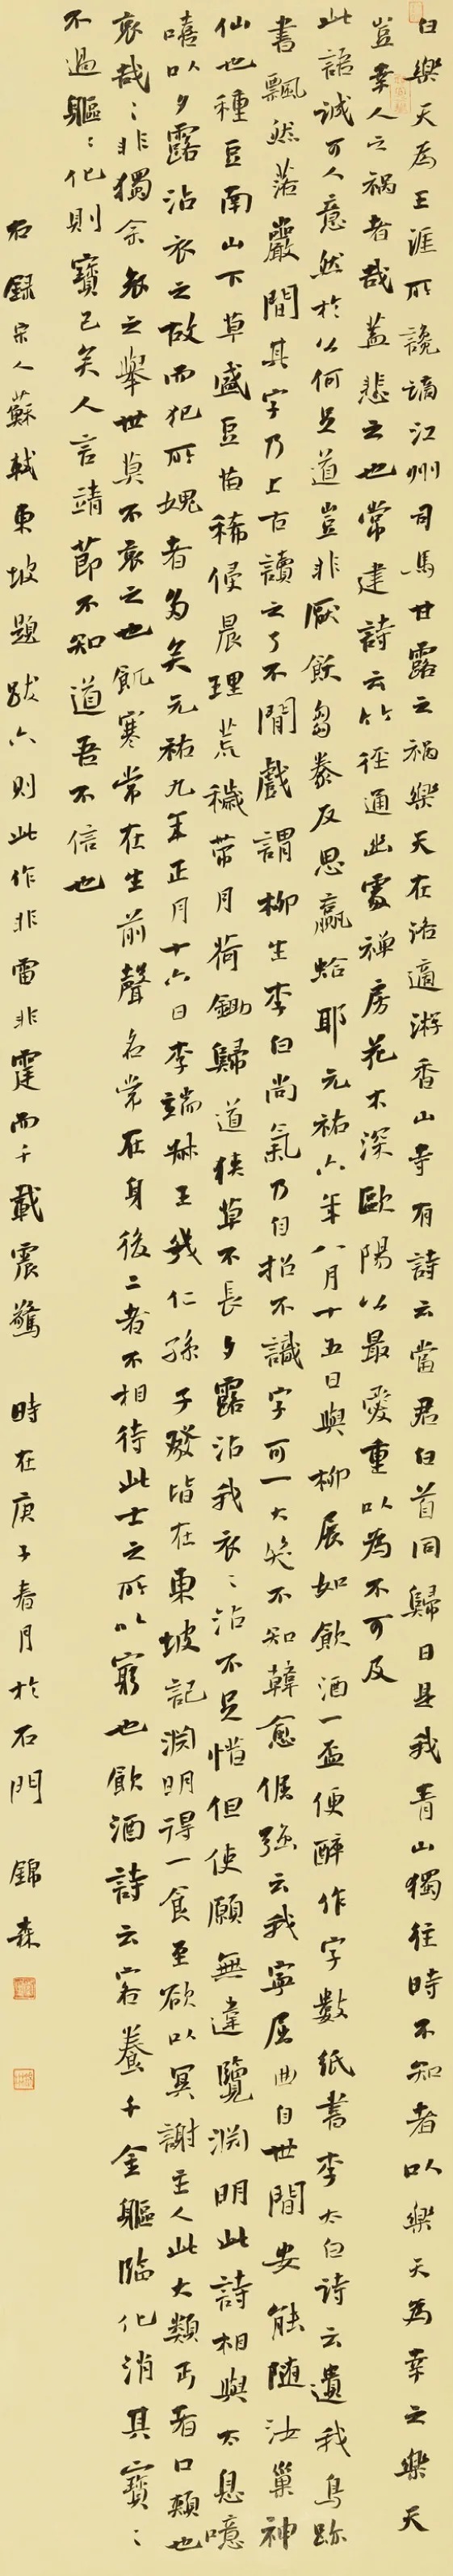 白樂天為王涯所讒謫江州司馬甘露之禍樂天在洛適游香山寺有詩云當君白首同歸日是我青山獨往時不知者以樂天為幸之樂天
豈幸人之禍者哉蓋悲之也常建詩云竹徑通幽處禪房花木深歐陽公最愛重以為不可及
此語誠可人意然於公何足道豈非厭飫芻豢反思蠃蛤耶元祐六年八月十五日與柳展如飲酒一盃便醉作字數紙書李太白詩云遺我鳥跡
書飄然落巖間其字乃上古讀之了不閒戲謂柳生李白尚氣乃自招不識字可一大笑不如韓愈倔強云我寧屈曲自世間安能隨汝巢神
仙也種豆南山下草盛豆苗稀侵晨理荒穢帶月荷鋤歸道狹草不長夕露沾我衣衣沾不足惜但使願無違覽淵明此詩相與太息噫
嘻以夕露沾衣之故而犯所媿者多矣元祐九年正月十六日李端叔王幾仁孫子發皆在東坡記淵明得一食至欲以冥謝主人此大類丐者口頰也
哀哉哀哉非獨余哀之舉世莫不哀之也飢寒常在生前聲名常在身後二者不相待此士之所以窮也飲酒詩云客養千金軀臨化消其寶寶
不過軀軀化則寶已矣人言靖節不知道吾不信也
右錄宋人蘇軾東坡題跋六則此作非雷非霆而千載震驚 時在庚子春月於石門 錦森